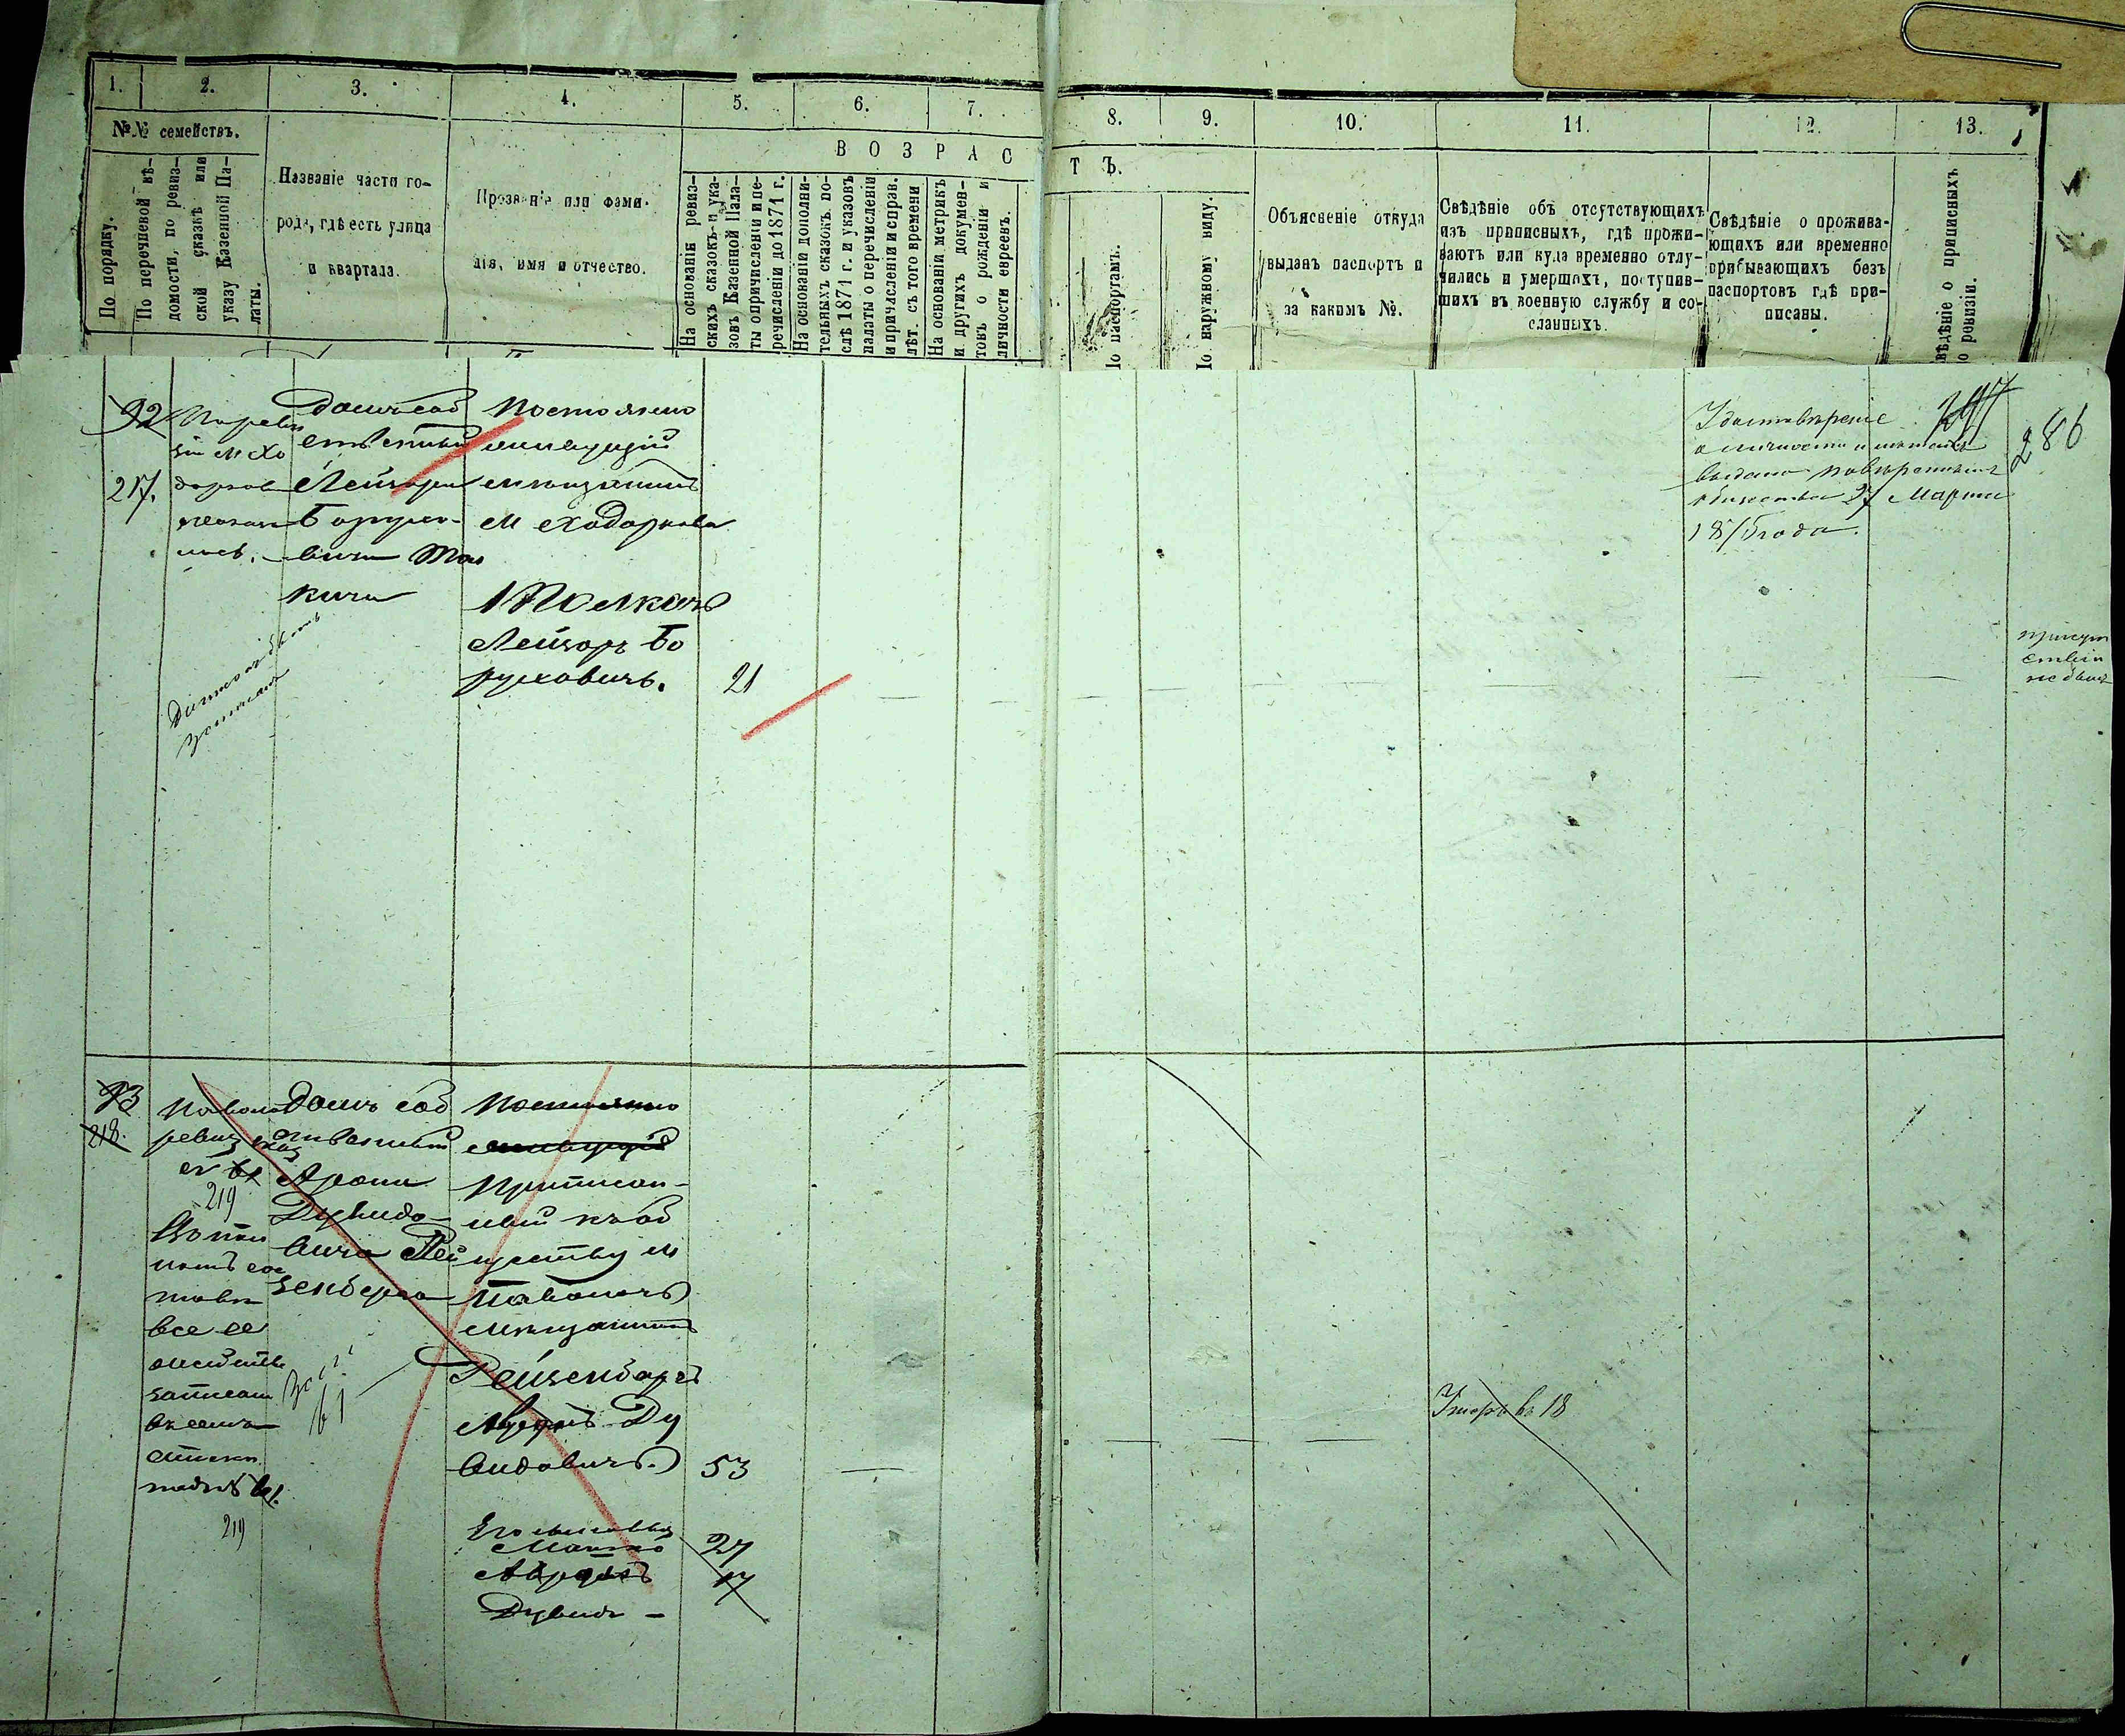 1. 2. 3. 4. 5. 6. 7. 8. 9. 10. 11. 12. 13.
№№ семействъ.
По порядку.
По перечневой вѣ-
домости, по ревиз-
ской сказкѣ или
указу Казенной Па-
латы.
Названіе части го-
рода, гдѣ есть улица
и квартала.
Прозваніе или фами-
лія, имя и отчество.
ВОЗРАСТЪ.
На основаніи ревиз-
скихъ сказокъ и ука-
зовъ Казенной Пала-
ты о причисленіи и пе-
речисленіи до 1871 г.
На основаніи дополни-
тельныхъ сказокъ по-
слѣ 1871 г. и указовъ
палаты о перечисленіи
и причисленіи и справ.
лѣт. съ того времени
На основаніи метрикъ
и другихъ докумен-
товъ о рожденіи и
личности евреевъ.
По паспортамъ.
По наружному виду.
Объясненіе откуда
выданъ паспортъ и
за какимъ №.
Свѣдѣніе объ отсутствующихъ
изъ приписныхъ, гдѣ прожи-
ваютъ или куда временно отлу-
чились и умершихъ, поступив-
шихъ въ военную службу и со-
сланныхъ.
Свѣдѣніе о прожива-
ющихъ или временно
прибывающихъ безъ
паспортовъ гдѣ при-
писаны.
Свѣдѣніе о приписныхъ
по ревизіи.
92
217.
По реви
зіи м Хо
дорков
домъ соб
ственный
Лейзора
Борухо-
вича Тол
кача
Постоянно
живущій
мѣщанинъ
м Ходоркова
1 Толкачъ
Лейзоръ Бо
руховичъ.
21
Удостовѣреніе
о личности
выдано повѣреннымъ
общества 27 Марта
1875 года.
297
286
присут
ствіи
не былъ
93
218.
ревиз
219
домъ соб
ственный
Арона
Дувидо-
вича Рей
зенберга
Постоянно
живущій
Приписан-
ный къ об
ществу м
Паволочъ
мѣщанинъ
Рейзенбергъ
Аронъ Ду
видовичъ.
53
все се
мейство
записан
219
Его сыновья
Мошко
27
Абрамъ
17
Дувидъ -
Умеръ въ 18